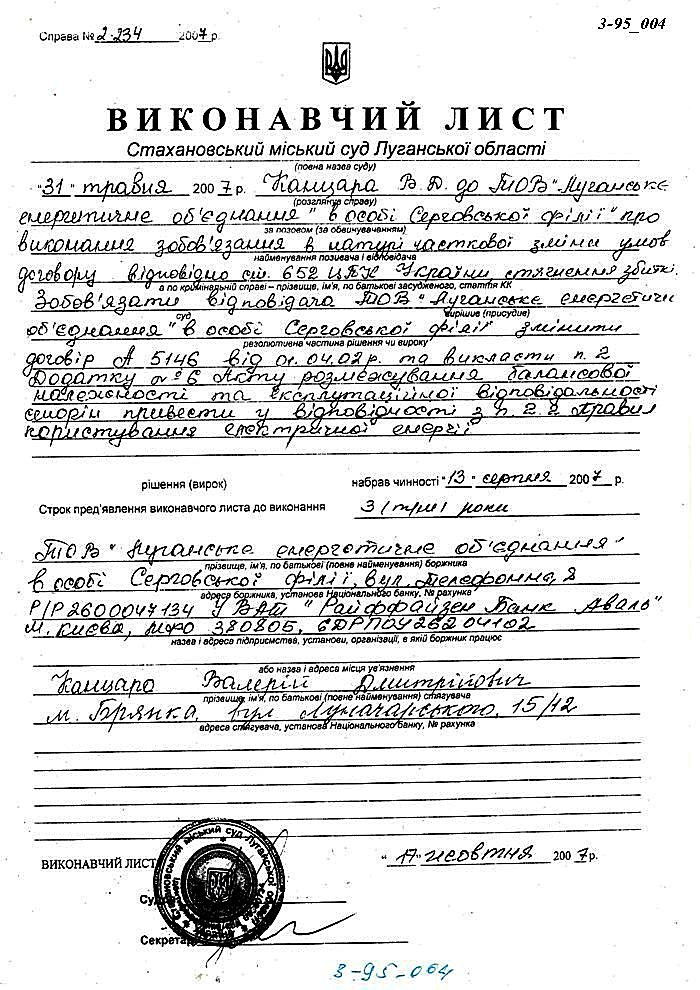 3-95_004
Справа № 2-234 2007 р.
ВИКОНАВЧИЙ ЛИСТ
Стахановський міський суд Луганської області
(повна назва суду)
"31" травня 2007 р. Канцара В.Д. до ТОВ "Луганське
(розглянув справу)
енергетичне об'єднання" в особі Серговської філії" про
за позовом (за обвинуваченням)
виконання зобов'язання в натурі часткової зміни умов
найменування позивача і відповідача
договору відповідно ст. 652 ЦПК України, стягнення збитк.
а по кримінальній справі - прізвище, ім'я, по батькові засудженого, стаття КК
Зобов'язати відповідача ТОВ "Луганське енергетичн
суд вирішив (присудив)
об'єднання" в особі Серговської філії змінити
резолютивна частина рішення чи вироку
договір А 5146 від 01.04.02 р. та викласти п. 2
Додатку № 6 Акту розмежування балансової
належності та експлутаційної відповідальності
сторін привести у відповідності з п. 2.2 Правил
користування електричної енергії
рішення (вирок) набрав чинності "13" серпня 2007 р.
Строк пред'явлення виконавчого листа до виконання 3 (три) роки
ТОВ "Луганське енергетичне об'єднання"
прізвище, ім'я, по батькові (повне найменування) боржника
в особі Серговської філії, вул. Телефонна, 2
адреса боржника, установа Національного банку, № рахунка
Р/Р 2600047134 у ВАТ "Райффайзен Банк Аваль"
м. Києва, МФО 380805, ЄДРПОУ 26204102
назва і адреса підприємства, установи, організації, в якій боржник працює
або назва і адреса місця ув'язнення
Канцаро Валерій Дмитрійович
прізвище, ім'я, по батькові (повне найменування) стягувача
м. Брянка, вул Луначарського, 15/12
адреса стягувача, установа Національного банку, № рахунка
ВИКОНАВЧИЙ ЛИСТ "17" жовтня 2007 р.
Стахановський міський суд Луганської області
Україна
Суд
Секретар
3-95_004